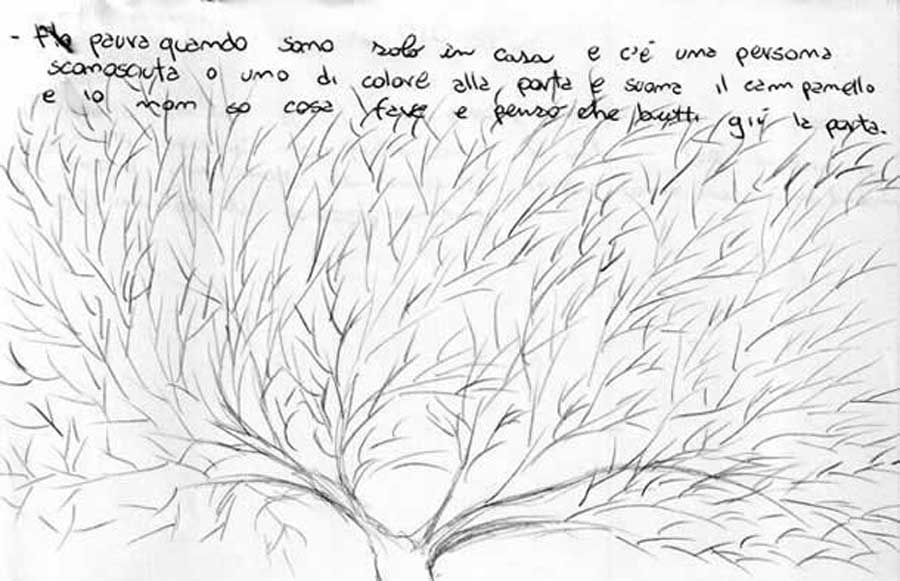 - paura quando sono solo in casa e c'è una persona
sconosciuta o uno di colore alla porta e suona il campanello
e io non so cosa fare e penso che butti giù la porta.